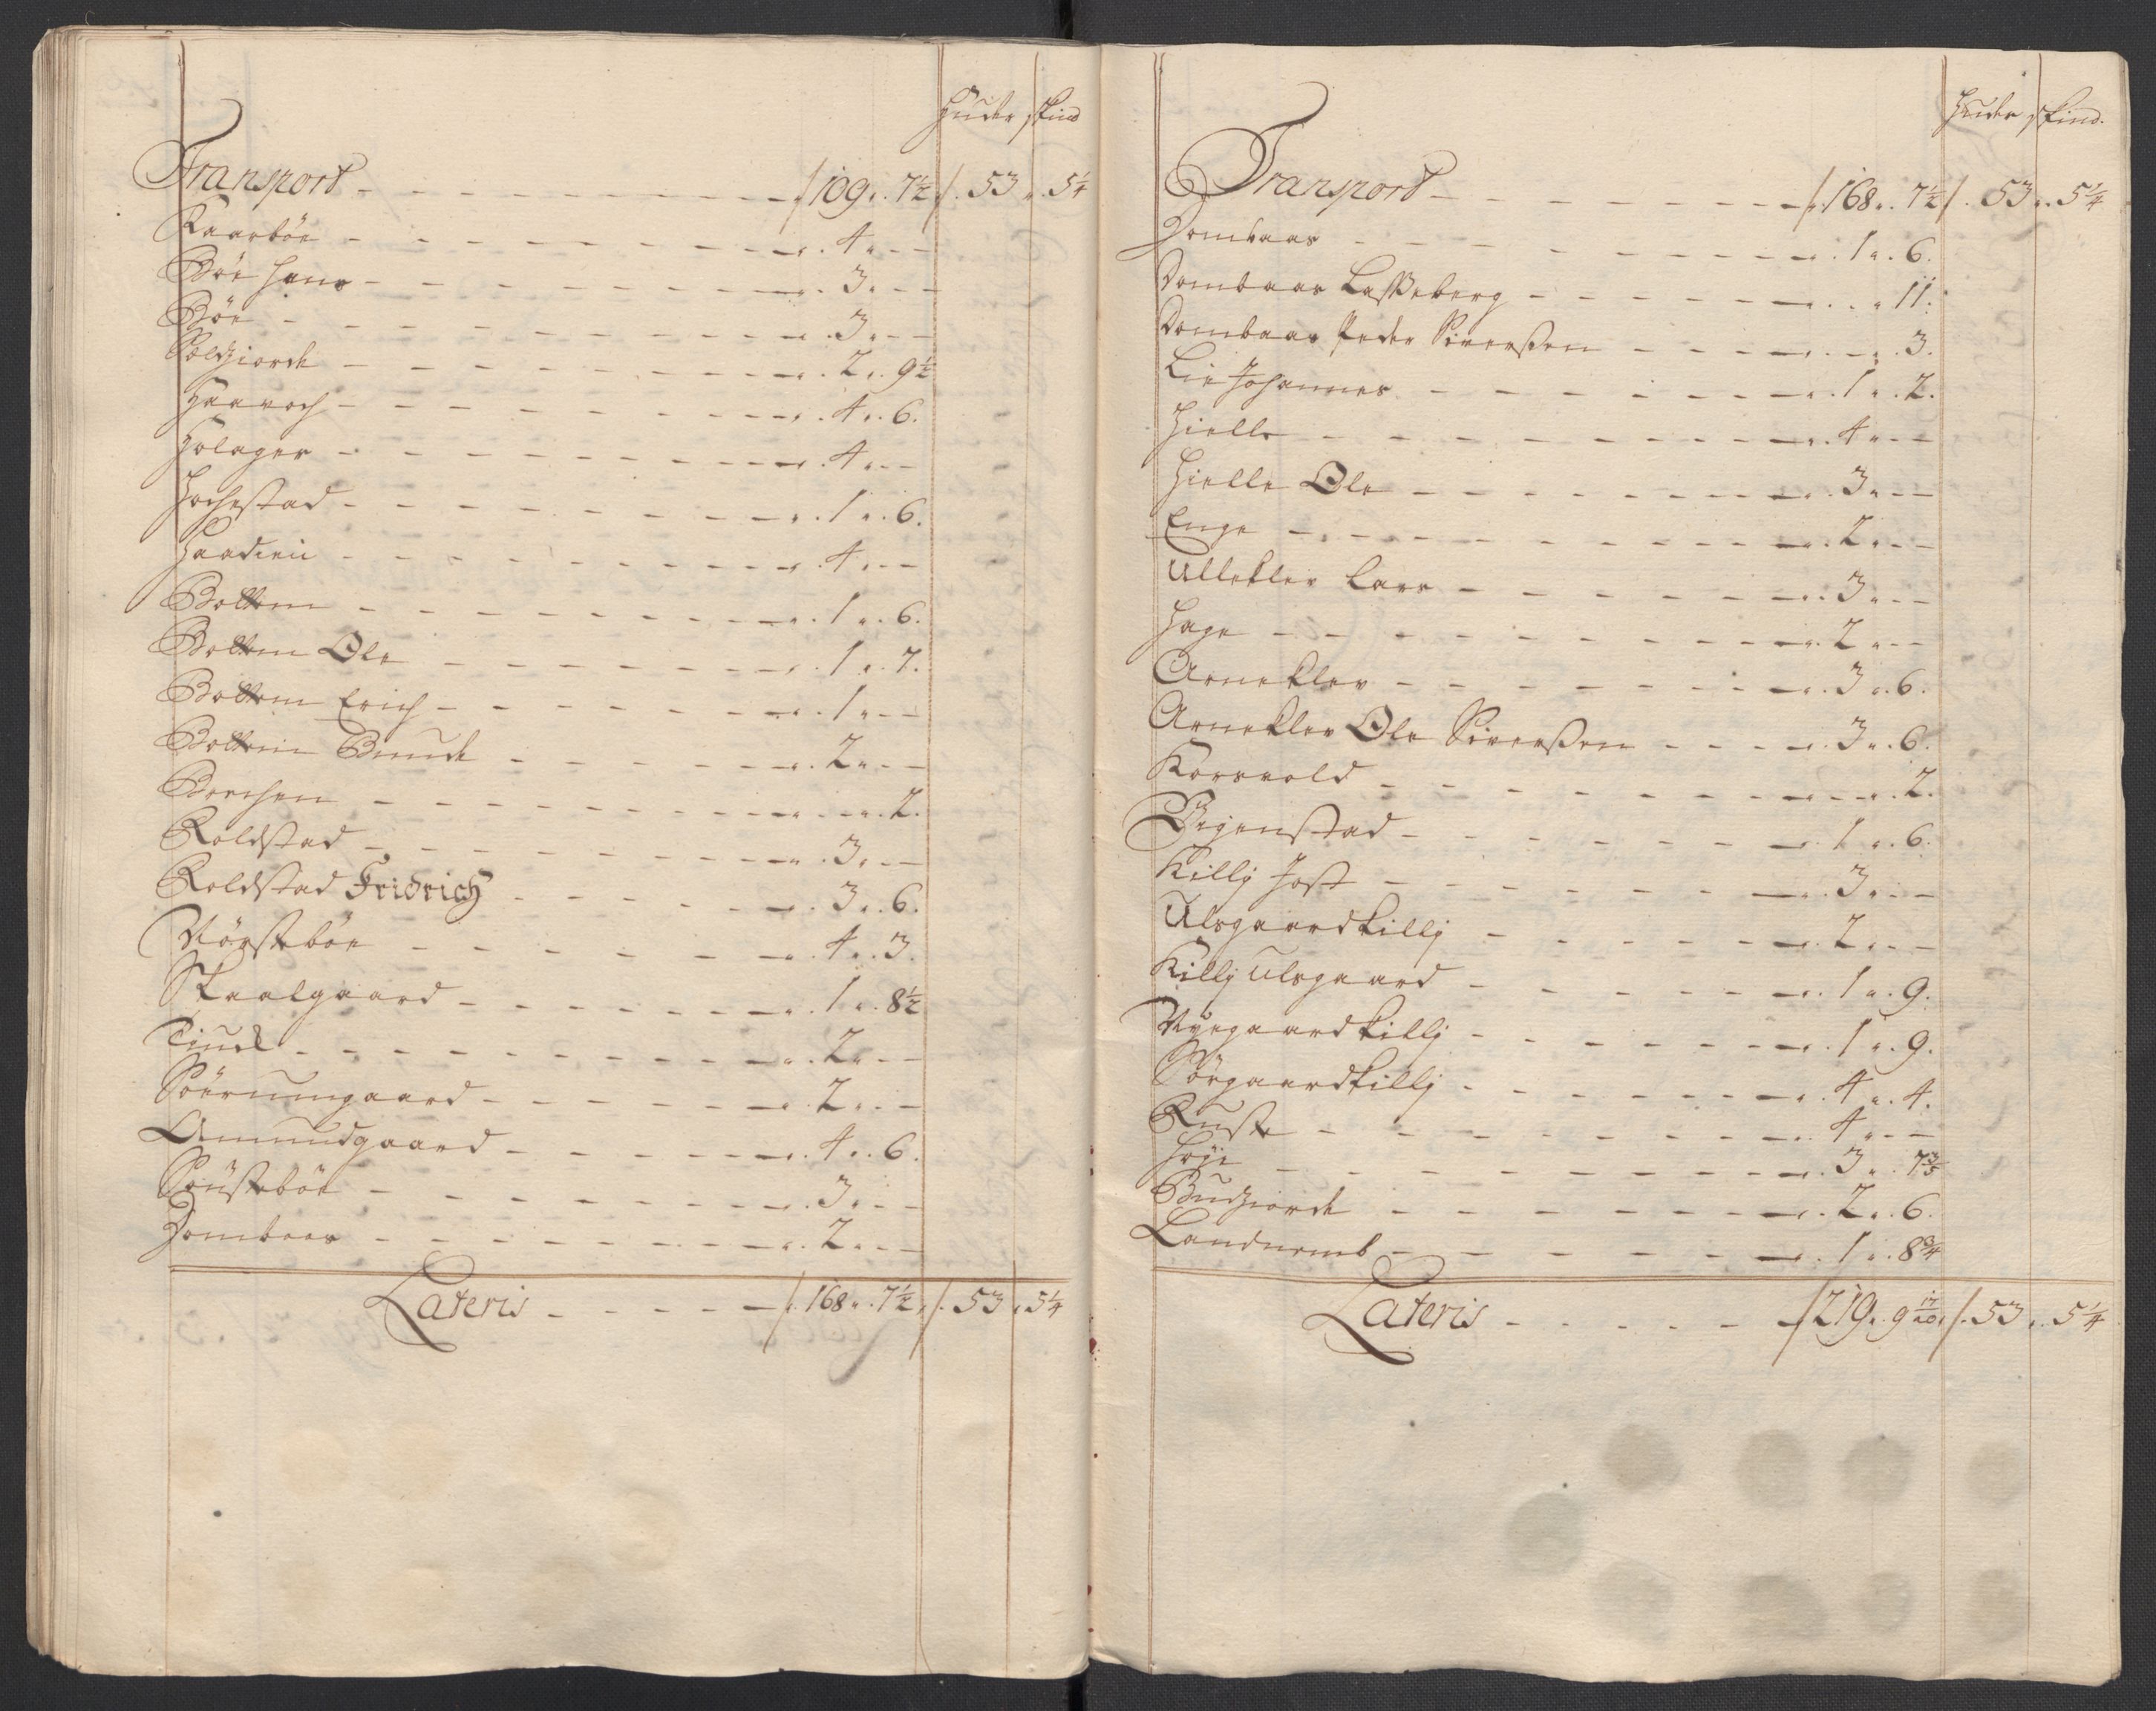 Huder skind
Transport - - - - - - - - - /109 . 7½ /. 53 . 5¼
Kaarböe - - - - - - - - . 4 . - -
Böe Hans - - - - - - - - . 3 . - -
Böe - - - - - - - - . 3 . - -
Sølgiorde - - - - - - - . 2 . 9½
Haavoch - - - - - - - . 4 . 6.
Holager - - - - - - - . 4 . - -
Hochestad - - - - - - - . 1 . 6.
Haadien - - - - - - - . 4 . - -
Bottem - - - - - - - . 1 . 6.
Bottem Ole - - - - - - . 1 . 7.
Bottem Erich - - - - - - . 1 . - -
Bottem Bunde - - - - - . 2 . - -
Berchen - - - - - - - . - . 2.
Roldstad - - - - - - - . 3 . - -
Roldstad Fridrich - - - - - . 3 . 6.
Nörsteböe - - - - - - . 4 . 3.
Skaalgaard - - - - - - . 1 . 8½
Tiuel - - - - - - - . 2 . - -
Sörumgaard - - - - - . 2 . - -
Amundgaard - - - - - . 4 . 6.
Söustebøe - - - - - - . 3 . - -
Dombaas - - - - - - . 2 . - -
Lateris - - - - - /. 168 . 7½ . /. 53 . 5¼
Huder skind.
Transport - - - - - - - - /. 168 . 7½ /. 53 . 5¼
Dombaas - - - - - - - . 1 . 6.
Dombaas Lasseberg - - - - - . . 11.
Dombaas Peder Siverßen - - - - . - . 3.
Lie Johannes - - - - - - . 1 . 2.
Hielle - - - - - - - . 4 . - -
Hielle Ole - - - - - - . 3 . - -
Enge - - - - - - - . 2 . - -
Ullekler Lars - - - - - . 3 . - -
Hage - - - - - - - . 2 . - -
Arnekler - - - - - - . 3 . 6.
Arnekler Ole Siverßen - - - - . 3 . 6.
Korsvold - - - - - - - . 2.
Bigenstad - - - - - - . 1 . 6.
Killj Jost - - - - - - . 3 . - -
Ulsgaardkillj - - - - - . 2 . - -
Killj Ulsgaard - - - - - . 1 . 9.
Nyegaardkillj - - - - - . 1 . 9.
Sörgaardkillj - - - - - . 4 . 4.
Ruste - - - - - - . 4 . - -
Høÿe - - - - - - - . 3 . 7⅗
Budgiorde - - - - - - . 2 . 6.
Landnemb - - - - - - . 1 . 8¾
Lateris - - - - - /219 . 9 17/20 . /. 53 . 5¼